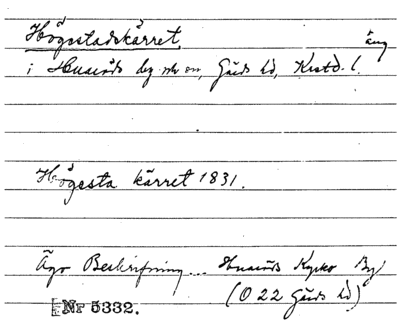 Högestadskärret, äng
i Huaröds by och sn, Gärds hd, Kristd. l.
Högesta kärret 1831.
Ägo Beskrifning... Huaröds Kyrko By
(O 22 Gärds hd)
Nr 5332.